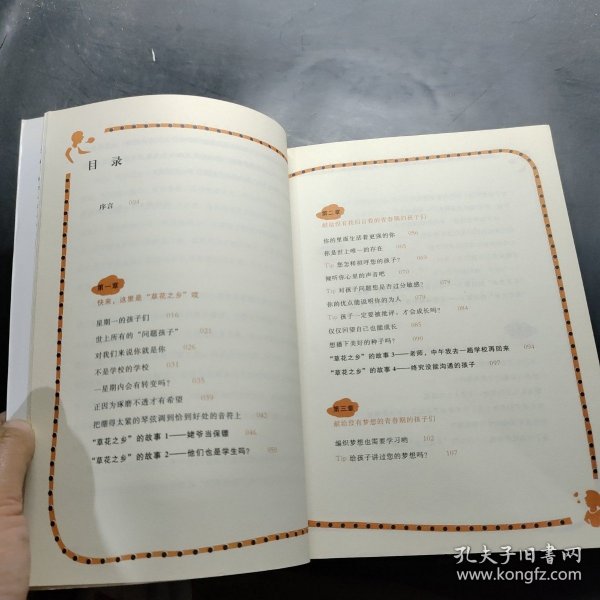 目 录
序言 004
第一章
快来，这里是“草花之乡”哦
星期一的孩子们 016
世上所有的“问题孩子” 021
对我们来说你就是你 026
不是学校的学校 031
一星期内会有转变吗？ 035
正因为琢磨不透才有希望 039
把绷得太紧的琴弦调到恰到好处的音符上 042
“草花之乡”的故事 1——姥爷当保镖 046
“草花之乡”的故事 2——他们也是学生吗？ 050
第二章
献给没有找到自我的青春期的孩子们
你的里面生活着更强的你 056
你是世上唯一的存在 065
Tip 您怎样相呼您的孩子？ 069
倾听你心里的声音吧 070
Tip 对孩子问题您是否过分敏感？ 076
你的优点能说明你的为人 077
Tip 孩子一定要被批评，才会成长吗？ 084
仅仅回望自己也能成长 085
想播下美好的种子吗？ 090
“草花之乡”的故事 3——老师，中午我去一趟学校再回来 094
“草花之乡”的故事 4——终究没能沟通的孩子 097
第三章
献给没有梦想的青春期的孩子们
编织梦想也需要学习哟 102
Tip 给孩子讲过您的梦想吗？ 107
孔夫子旧书网
www.kongfz.com